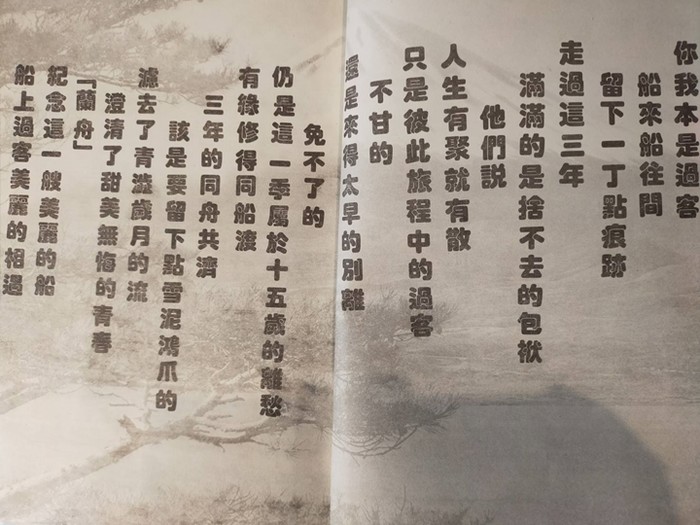 你我本是過客
船來船往間
留下一丁點痕跡
走過這三年
滿滿的是捨不去的包袱
他們說
人生有聚就有散
只是彼此旅程中的過客
不甘的
還是來得太早的別離
免不了的
仍是這一季屬於十五歲的離愁
有緣修得同船渡
三年的同舟共濟
該是要留下點雪泥鴻爪的
濾去了青澀歲月的流
澄清了甜美無悔的青春
「蘭舟」
紀念這一艘美麗的船
船上過客美麗的相遇